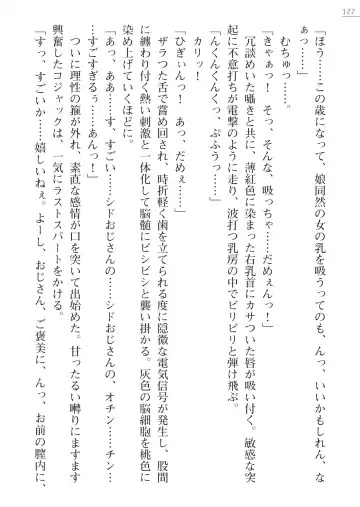 122
「ほう……この歳になって、娘同然の女の乳を吸うってのも、んっ、いいかもしれん、な
ぁっ……」
むちゅっ……
「きゃぁっ！　そっ、そんな、吸っちゃ……だめぇんっ！」
冗談めいた囁きと共に、薄紅色に染まった右乳首にカサついた唇が吸い付く。敏感な突
起に不意打ちが電撃のように走り、波打つ乳房の中でビリビリと弾け飛ぶ。
「んくんくんくっ、ぷふうっ……」
カリッ！
「ひぎぃんっ！　あっ、だめぇっ！」
ザラつた舌で嘗め回され、時折軽く歯を立てられる度に隠微な電気信号が発生し、股間
に纏わり付く熱い刺激と一体化して脳髄にビシビシと襲い掛かる。灰色の脳細胞を桃色に
染め上げていくほどに。
「あっ、ああ……す、すごい……シドおじさんの……シドおじさんの、オチン……チン…
…すごすぎるぅ……あんっ！」
ついに理性の箍が外れ、素直な感情が口を突いて出始めた。甘ったるい囀りにますます
興奮したコジャックは、一気にラストスパートをかける。
「すっ、すごいか……嬉しいねぇ。よーし、おじさん、ご褒美に、んっ、お前の膣内に、